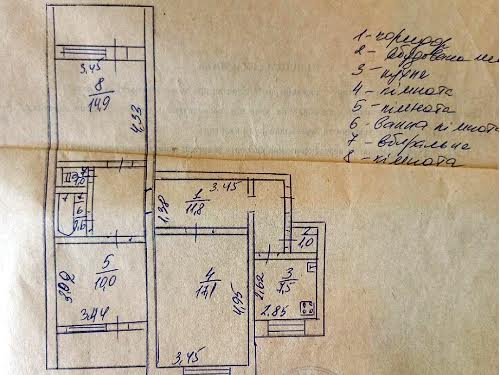 1 - коридор
2 - вбудована
3 - кухня
4 - кімната
5 - кімната
6 - ванна кімната
7 - вбиральня
8 - кімната
3,45
8
14,9
4,33
1
11,8
3.45
1,38
6
2,6
5
10,0
3,92
3,44
4
17,1
4,95
3,45
2
1,0
3
7,5
2,62
2.85